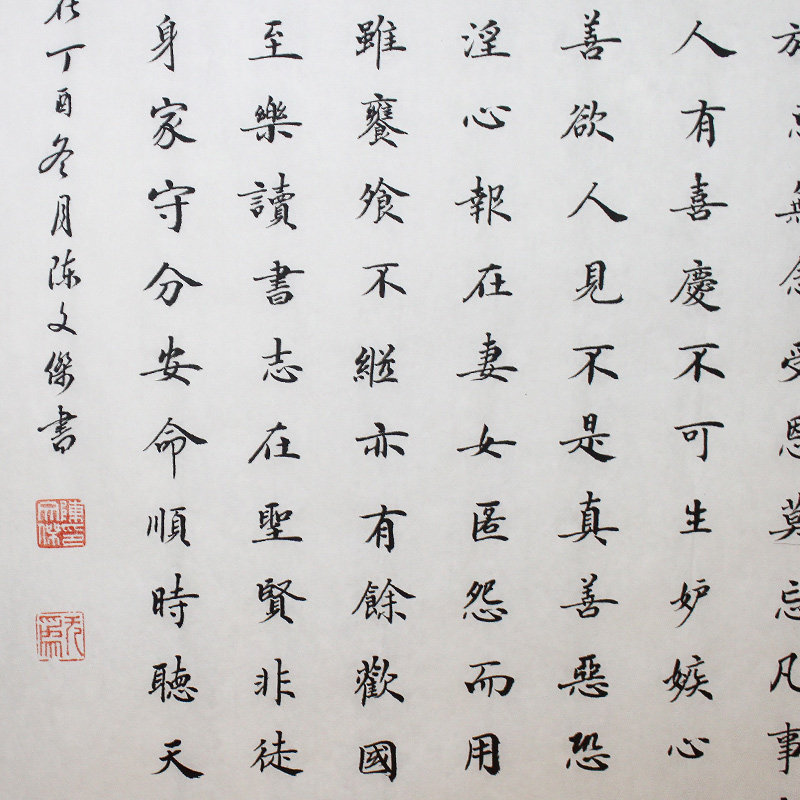 施惠無念受恩莫忘凡事
人有喜慶不可生妒嫉心
善欲人見不是真善惡恐
淫心報在妻女匿怨而用
雖饔飧不繼亦有餘歡國
至樂讀書志在聖賢非徒
身家守分安命順時聽天
在丁酉冬月陈文傑書